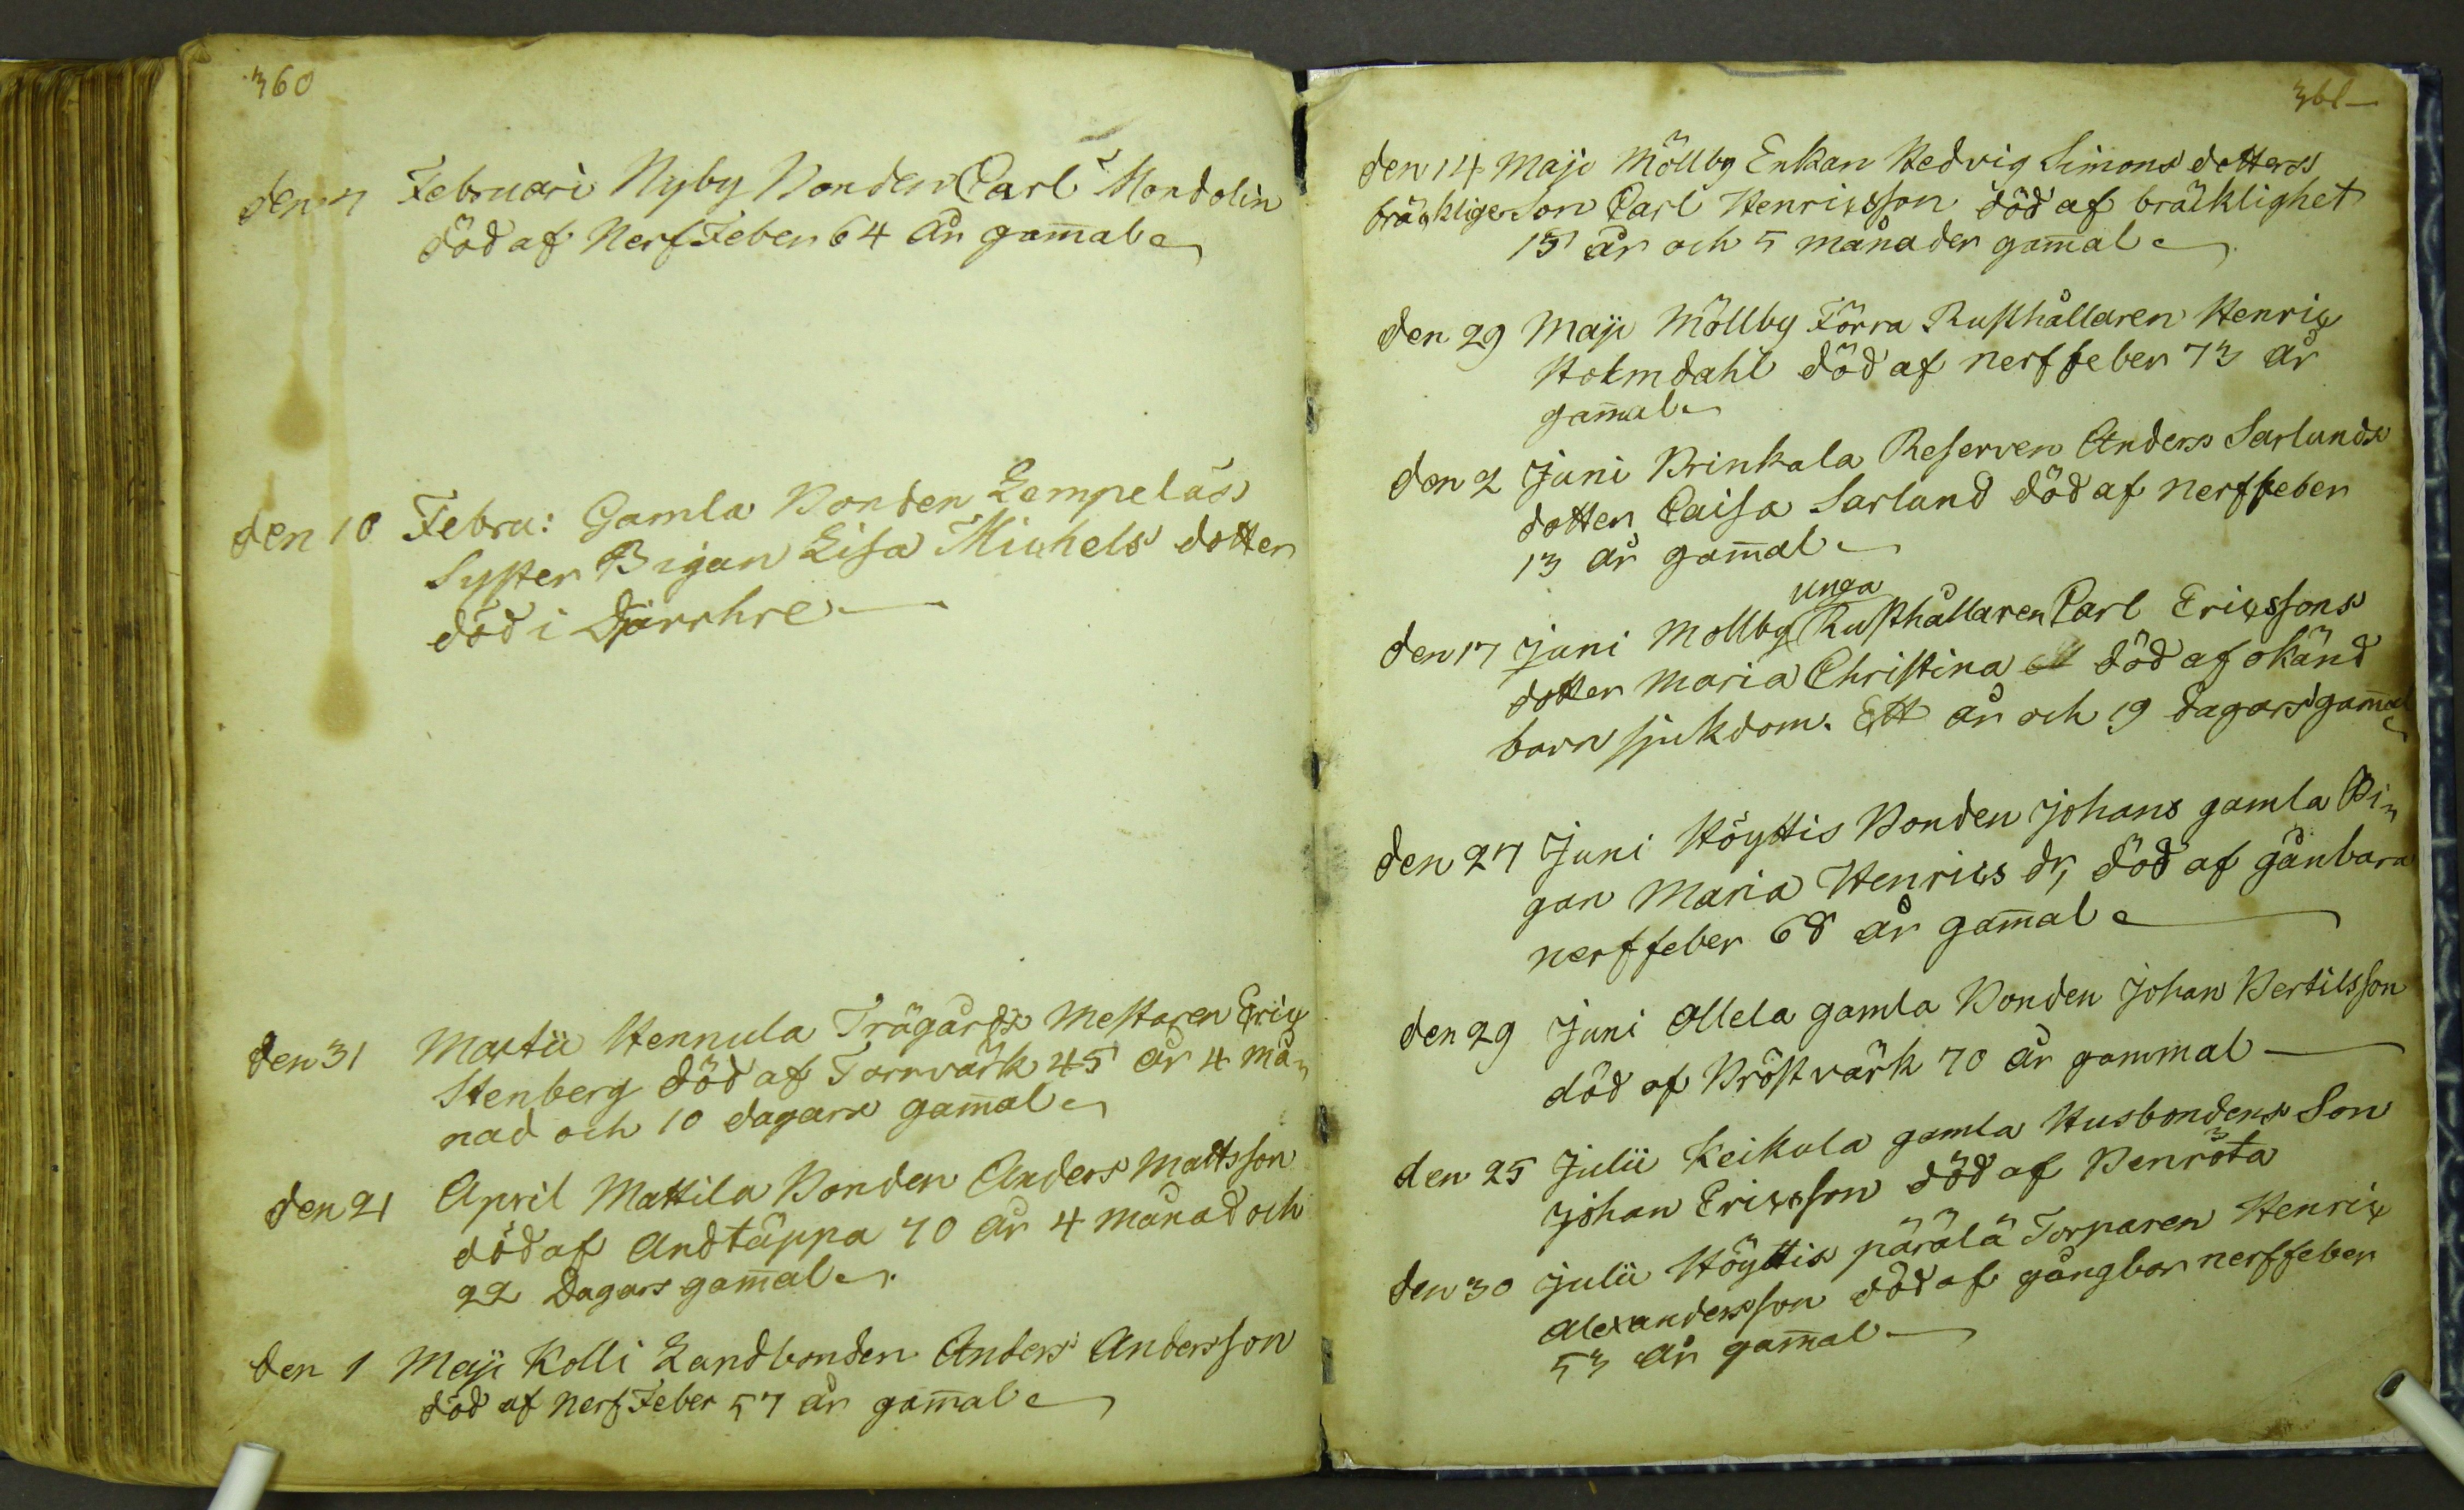 360
den 7 Februari Nyby Bonden Carl Mandolin
död af Nerf Feber 64 år gam̄al
den 10 Febru: Gamla Bonden Lempeläs
Syster Bigan Lisa Michels dotter
död i
den 31 Martii Hennula Trägårds Mestaren Eric
Stenberg död af Torrvärk 45 år 4 må„
nad och 10 dagars gam̄al
den 21 April Mattila Bonden Anders Mattsson
död af Andtäppa 70 år 4 månad och
22 Dagars gam̄al
den 1 Maji Kolli Landbonden Anders Andersson
död af Nerf Feber 57 år gam̄al
361
den 14 Maji Möllby Enkan Hedvig Simons dotters
bräcklige Son Carl Henricsson död af bräcklighet
15 år och 5 månader gam̄al
den 29 Maji Möllby Förra Rusthållaren Henric
Holmdahl död af nerffeber 73 år
gam̄al
den 2 Juni Brinkala Reserven Anders Sarlunds
dotter Caisa Sarlund död af nerffeber
13 år gam̄al
unga
den 17 Juni Mollby Rusthållaren Carl Ericssons
dotter Maria Christina död af okänd
barn sjukdom. Ett år och 19 dagars gam̄al
den 27 Juni Höyttis Bonden Johans gamla Pi„
gan Maria Henrics dr, död af gånbara
nerffeber 68 år gam̄al
den 29 Juni Allela gamla Bonden Johan Bertilsson
död af Bröstvärk 70 år gammal
den 25 Julii Keikola gamla Husbondens Son
Johan Ericsson död af Benröta
den 30 Julii Höyttis pärälä Torparen Henric
Alexandersson död af gångbar nerffeber
53 år gam̄al